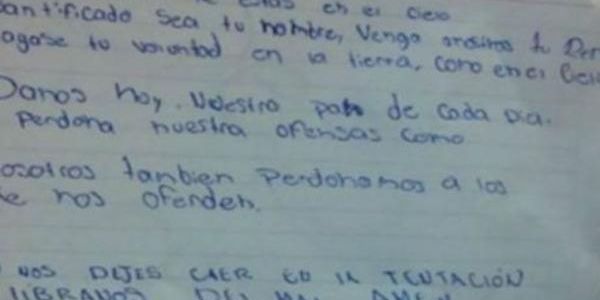 estas en el cielo
antificado sea tu nombre, Venga
agase tu voluntad en la tierra, como en el Ciel
Danos hoy. Nuestro pan de cada dia.
perdona nuestra ofensas como
osotros tambien perdonamos a los
e nos ofenden.
NOS DEJES CAER EN LA TENTACIÓN
LIBRANOS DEL MAL AMEN